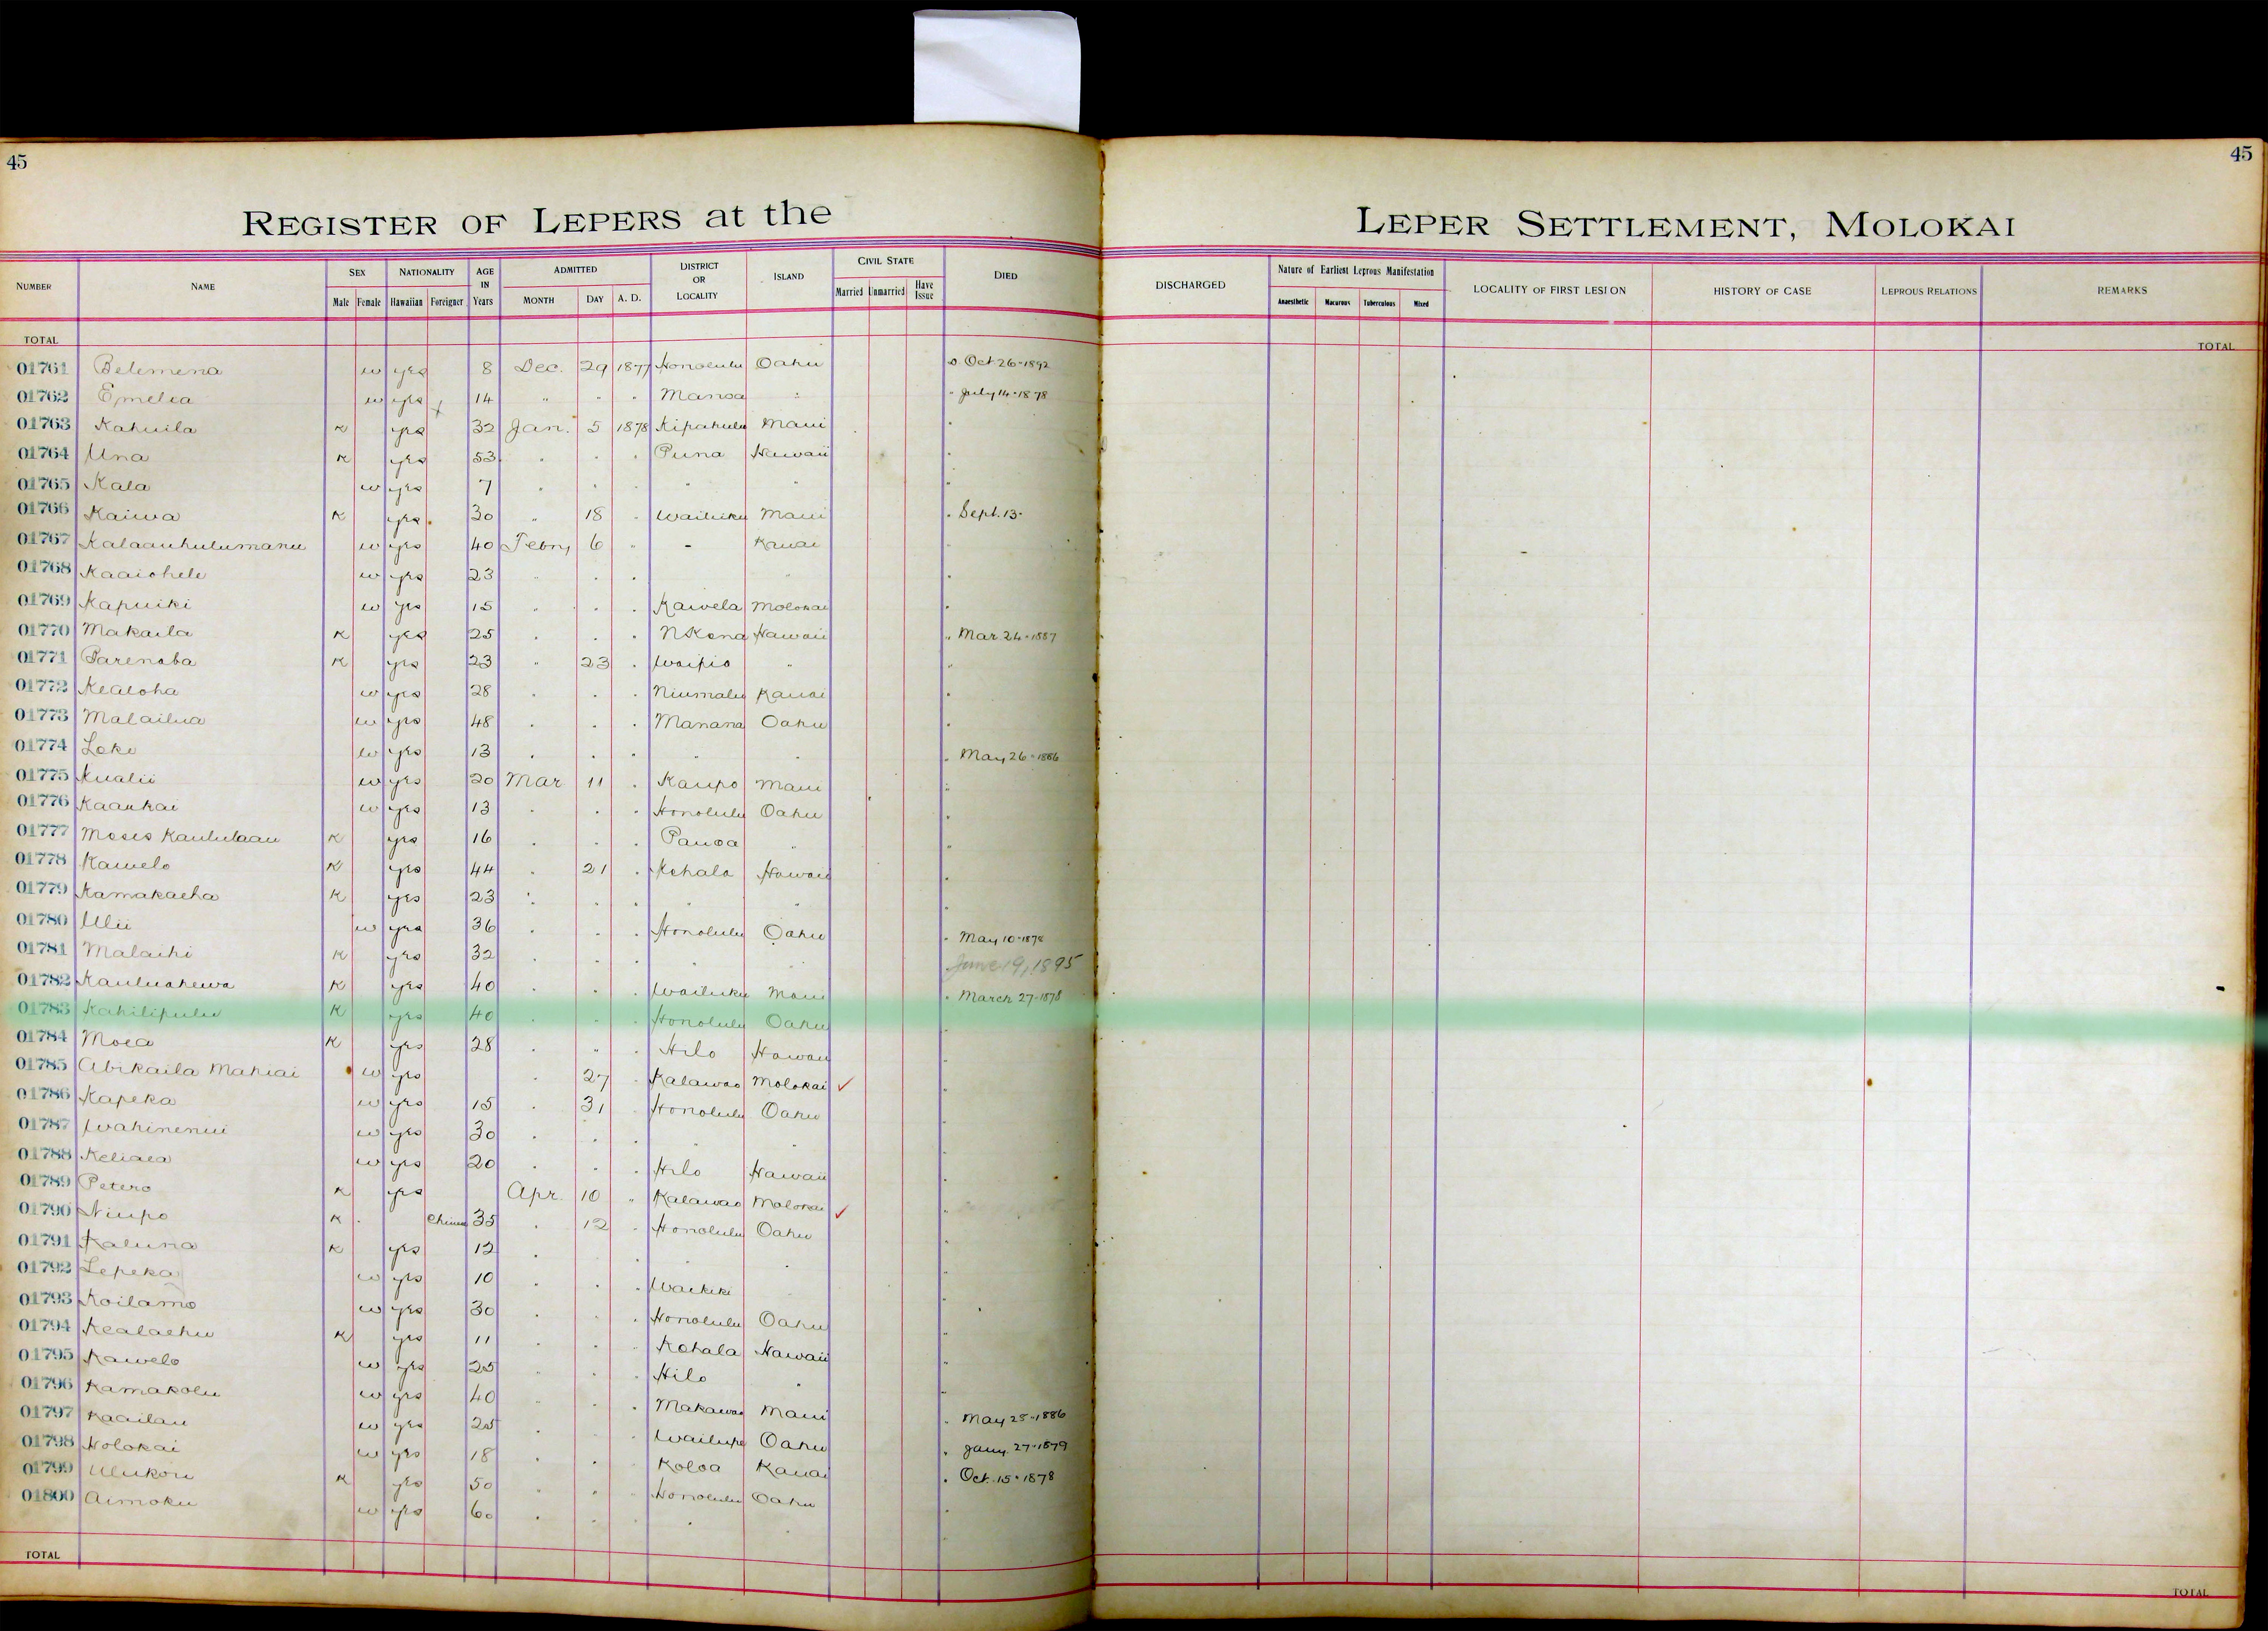 45
45
REGISTER OF LEPERS at the LEPER SETTLEMENT, MOLOKAI
NUMBER NAME SEX NATIONALITY AGE IN Years ADMITTED DISTRICT OR LOCALITY ISLAND CIVIL STATE DIED DISCHARGED Nature of Earliest Leprous Manifestation LOCALITY OF FIRST LESION HISTORY OF CASE LEPROUS RELATIONS REMARKS
Male Female Hawaiian Foreigner MONTH DAY A. D. Married Unmarried Have Issue Anaesthetic Macurous Tuberculous Mixed
TOTAL TOTAL
01761 Belemena w yes 8 Dec. 29 1877 Honolulu Oahu Oct 26-1892
01762 Emelia w yes 14 " " " Manoa " " July 14-1878
01763 Kahuila K yes 32 Jan. 5 1878 Kipahulu Maui "
01764 Una K yes 53 " " " Puna Hawaii "
01765 Kala w yes 7 " " " " " "
01766 Kaiwa K yes 30 " 18 " Wailuku Maui " Sept. 13-
01767 Kalaauhulumanu w yes 40 Febry 6 " - Kauai "
01768 Kaaiohele w yes 23 " " " " "
01769 Kapuiki w yes 15 " " " Kawela Molokai "
01770 Makaila K yes 25 " " " N Kona Hawaii " Mar. 24-1887
01771 Parenaba K yes 23 " 23 " Waipio " "
01772 Kealoha w yes 28 " " " Niumalu Kauai "
01773 Malailua w yes 48 " " " Manana Oahu "
01774 Leke w yes 13 " " " " " " May 26-1886
01775 Kualii w yes 20 Mar 11 " Kaupo Maui "
01776 Kaaukai w yes 13 " " " Honolulu Oahu "
01777 Moses Kaululaau K yes 16 " " " Pauoa " "
01778 Kawelo K yes 44 " 21 " Kohala Hawaii "
01779 Kamakaeha K yes 23 " " " " " "
01780 Ulii w yes 36 " " " Honolulu Oahu " May 10-1878
01781 Malaihi K yes 32 " " " " " June 19, 1895
01782 Kauluahewa K yes 40 " " " Wailuku Maui " March 27-1878
01783 Kahilipulu K yes 40 " " " Honolulu Oahu "
01784 Moea K yes 28 " " " Hilo Hawaii "
01785 Abikaila Mahiai w yes " 27 " Kalawao Molokai ✓ "
01786 Kapeka w yes 15 " 31 " Honolulu Oahu "
01787 Wahinenui w yes 30 " " " " " "
01788 Keliaea w yes 20 " " " Hilo Hawaii "
01789 Petero K yes Apr. 10 " Kalawao Molokai ✓ "
01790 Niupo K Chinese 35 " 12 " Honolulu Oahu "
01791 Kaluna K yes 12 " " " " " "
01792 Lepeka w yes 10 " " " Waikiki " "
01793 Koilamo w yes 30 " " " Honolulu Oahu "
01794 Kealaehu K yes 11 " " " Kohala Hawaii "
01795 Kawelo w yes 25 " " " Hilo " "
01796 Kamakolu w yes 40 " " " Makawao Maui "
01797 Kaailau w yes 25 " " " Wailupe Oahu " May 25-1886
01798 Holokai w yes 18 " " " Koloa Kauai " Jany. 27-1879
01799 Ulukou K yes 50 " " " Honolulu Oahu " Oct. 15-1878
01800 Aimoku w yes 60 " " " " " "
TOTAL TOTAL